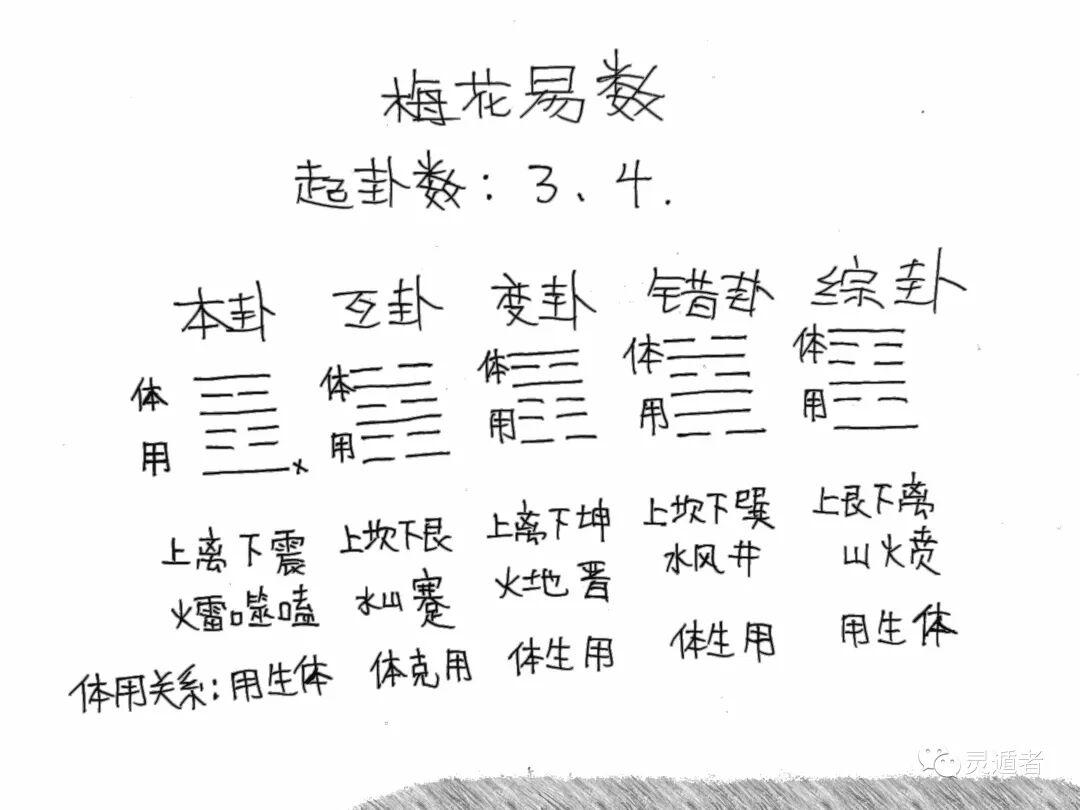 梅花易数
起卦数：3、4.
本卦 互卦 变卦 错卦 综卦
体 体 体 体 体
用 用 用 用 用
上离下震 上坎下艮 上离下坤 上坎下巽 上艮下离
火雷噬嗑 水山蹇 火地晋 水风井 山火贲
体用关系：用生体 体克用 体生用 体生用 用生体
灵遁者